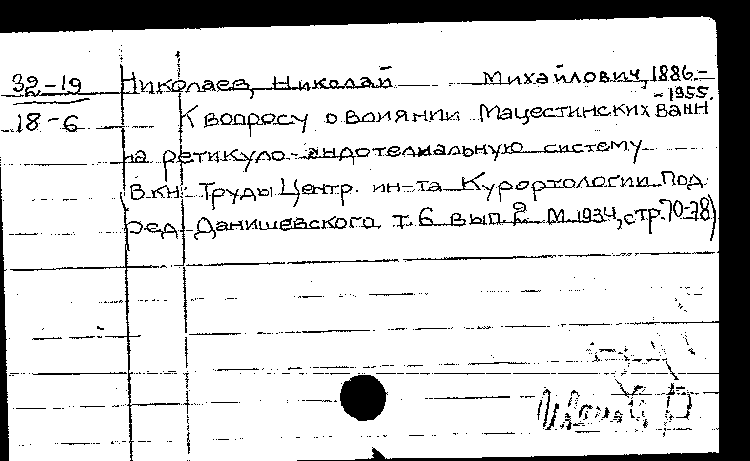 32-19 Николаев, Николай Михайлович, 1886-
-1955.
18-6 К вопросу о влиянии Мацестинских ванн
на ретикуло-эндотелиальную систему
(В кн: Труды Центр. ин-та Курортологии Под
ред. Данишевского. т. 6 вып. 2 М. 1934, стр. 70-78)